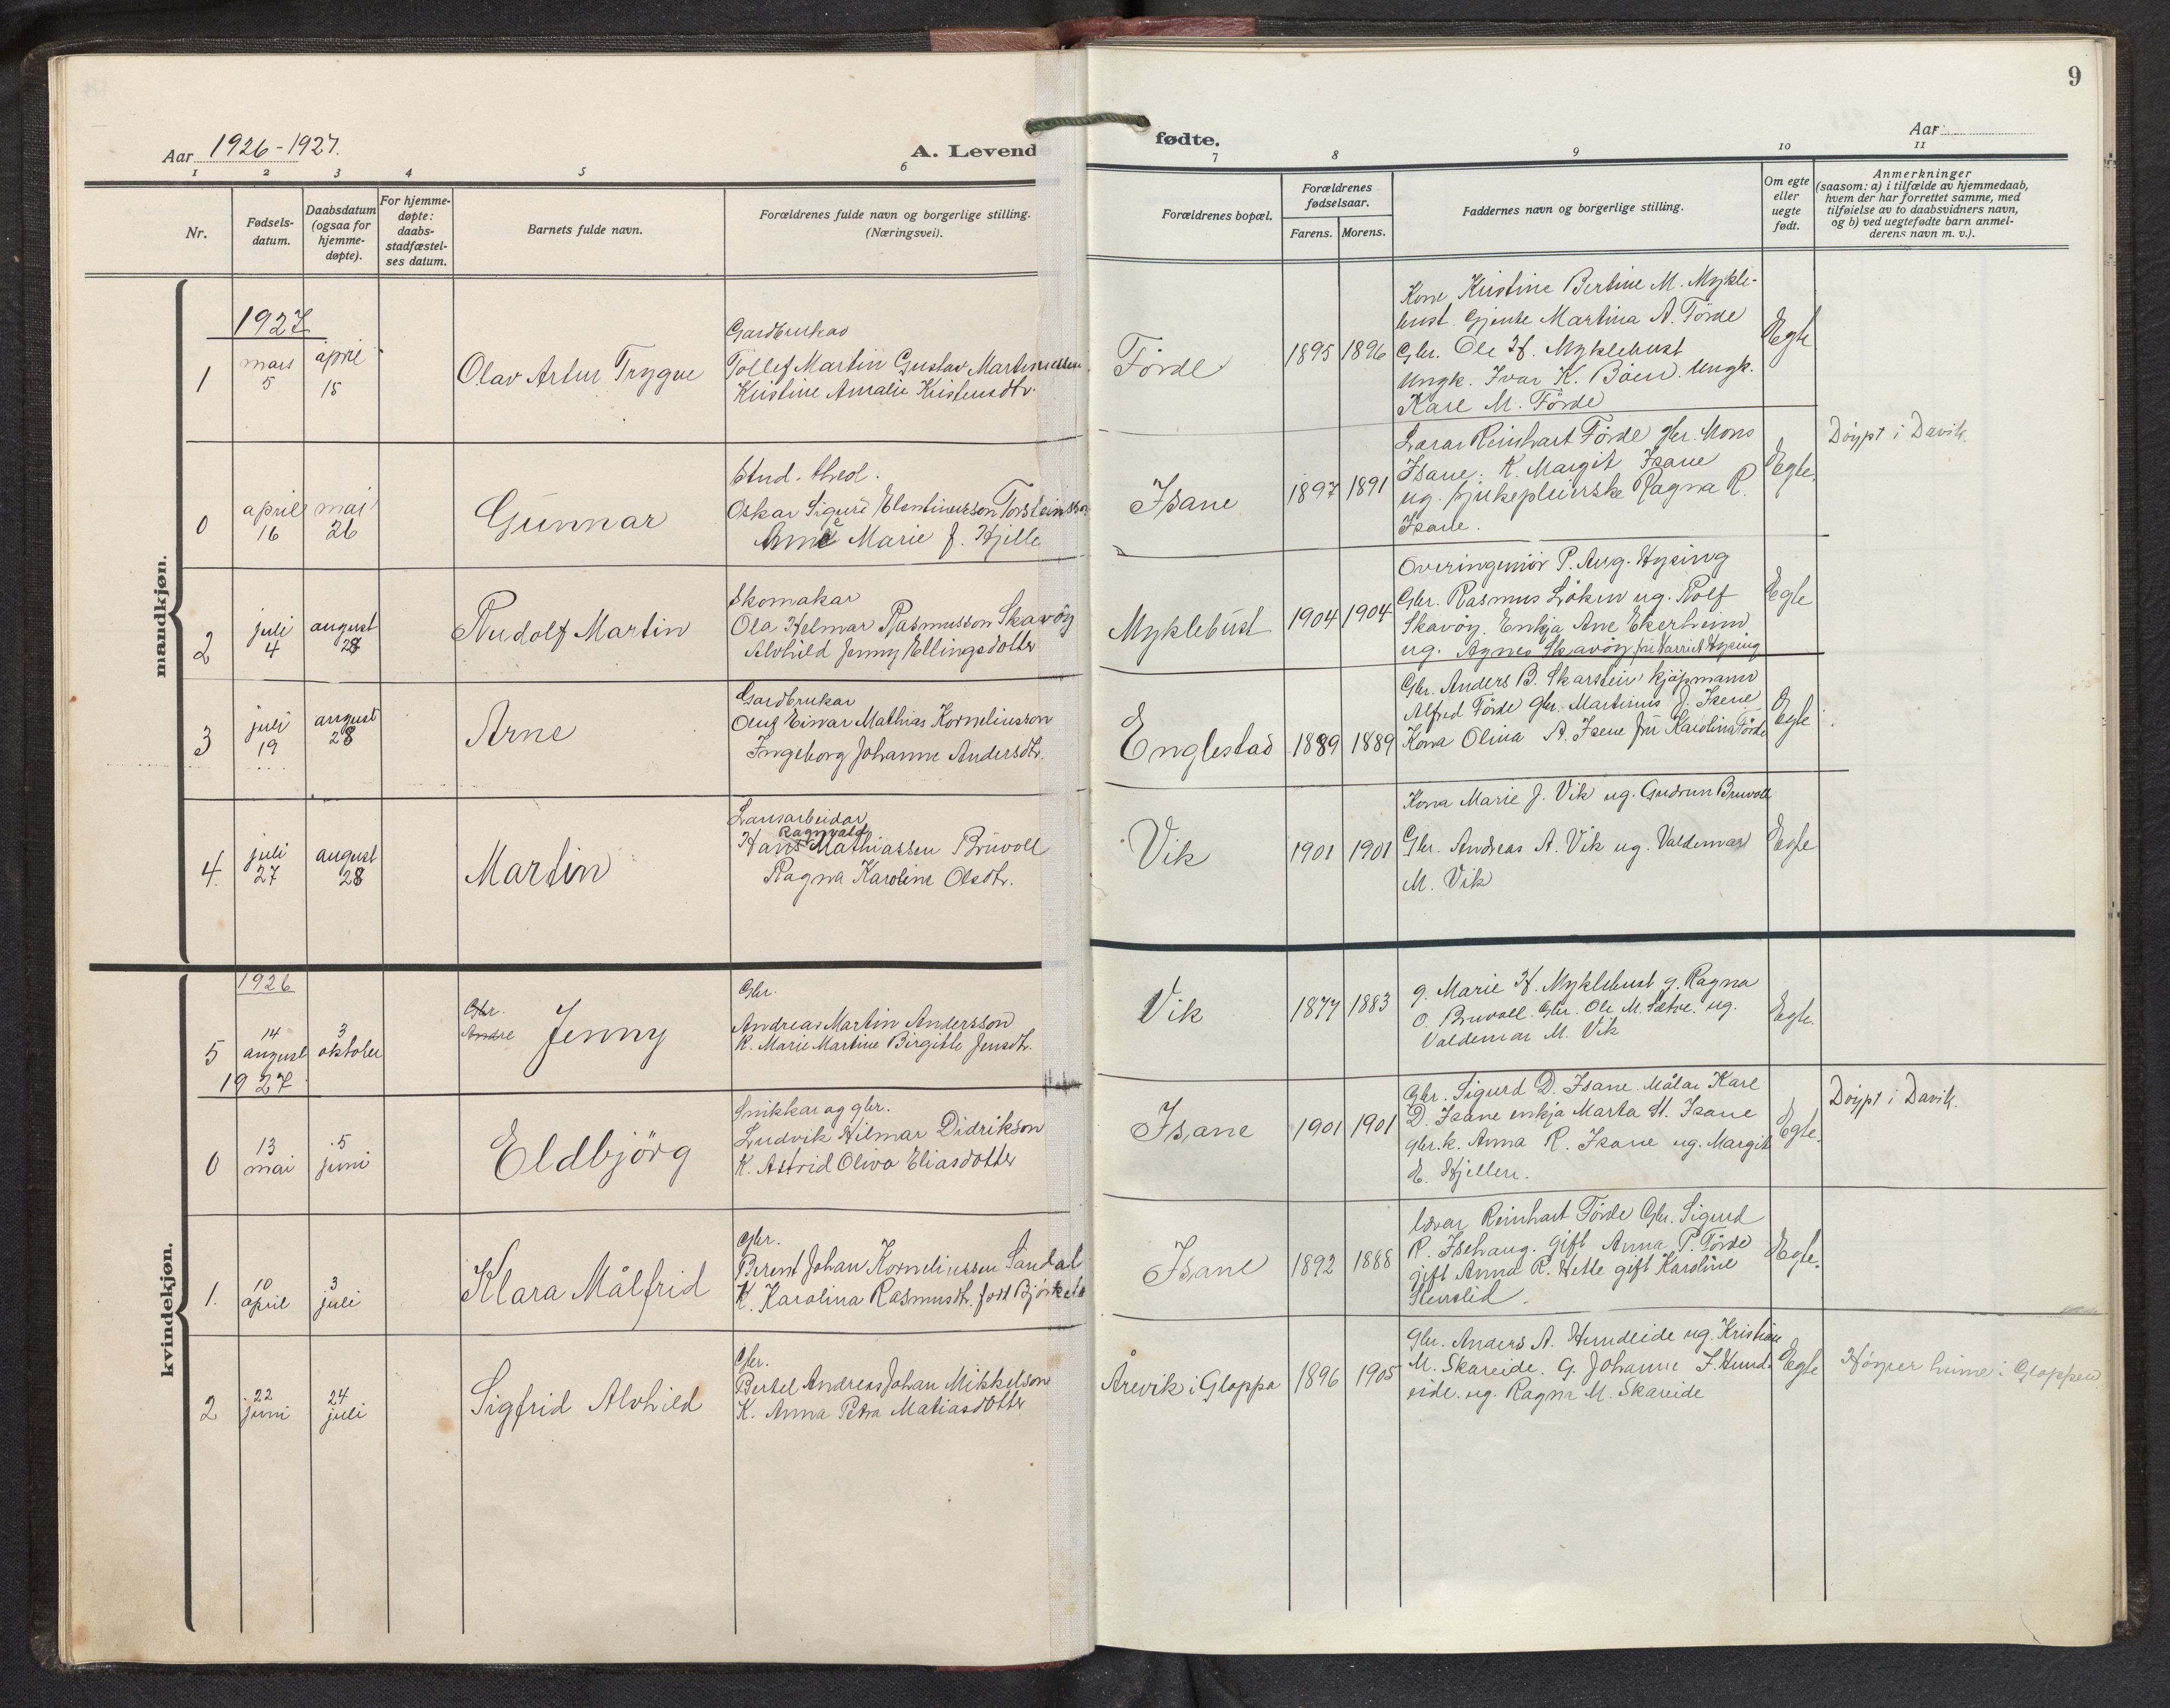 9
Aar 1926-1927.
A. Levende
fødte.
Aar
1 2 3 4 5 6 7 8 9 10 11
Nr.
Fødsels-
datum.
Daabsdatum
(ogsaa for
hjemme-
døpte).
For hjemme-
døpte:
daabs-
stadfæstel-
ses datum.
Barnets fulde navn.
Forældrenes fulde navn og borgerlige stilling.
(Næringsvei).
Forældrenes bopæl.
Forældrenes
fødselsaar.
Farens. Morens.
Faddernes navn og borgerlige stilling.
Om egte
eller
uegte
født.
Anmerkninger
(saasom: a) i tilfælde av hjemmedaab,
hvem der har forrettet samme, med
tilføielse av to daabsvidners navn,
og b) ved uegtefødte barn anmel-
derens navn m. v.).
mandkjøn.
1927
1
mars
5
april
18
Olav Artur Trygve
Gardbrukar
Tollef Martin Gustav Martinussen
Kristine Amalie Kristensdtr.
Förde
1895 1896
Kone Kristine Bertine M. Mykle-
bust. Gjente Martina A. Förde
Gbr. Ole H. Myklebust
Ungk. Ivar K. Böen. Ungk.
Kare M. Förde
Egte
0
april
16
mai
26
Gunnar
Stud. theol.
Oskar Sigurd Elentinusson Torsteinsson
Anne Marie J. Hjelle
Isane
1897 1891
Lærar Reinhart Förde gbr. Mons
Isane. K. Margit Isane
ug. sjukepleierske Ragna R.
Isane.
Egte.
Döypt i Davik.
2
juli
4
august
28
Rudolf Martin
Skomakar
Ola Helmar Rasmusson Skavöy
Alvhild Jenny Ellingsdotter
Myklebust
1904 1904
Overingeniör P. Aug. Hysing
Gbr. Rasmus Löken ug. Rolf
Skavöy. Enkja Ane Ekerheim
ug. Agnes Skavöy fru Harriet Hysing
Egte
3
juli
19
august
28
Arne
Gardbrukar
Oluf Einar Mathias Korneliusson
Ingeborg Johanne Andersdtr.
Englestad
1889 1889
Gbr. Anders B. Skarstein kjöpmann
Alfred Förde Gbr. Martinus J. Isene
Kona Olina A. Isene fru Karolina Förde
Egte
4.
juli
27
august
28
Martin
Lausarbeidar
Ragnvald
Hans Mathiassen Bruvoll
Ragna Karoline Olsdtr.
Vik
1901 1901
Kona Marie J. Vik ug. Gudrun Bruvoll
Gbr. Andreas A. Vik ug. Valdemar
M. Vik
Egte
kvindekjøn.
1926
5
14
august
3
oktober
Gbr.
Andre
Jenny
Gbr.
Andreas Martin Andersson
K. Marie Martine Birgitte Jensdtr.
Vik
1877 1883
g. Marie H. Myklebust g. Ragna
O. Bruvoll. Gbr. Ole M. Sætre. ug.
Valdemar M. Vik
Egte.
1927
0
13
mai
5
juni
Eldbjörg
Snikkar og gbr.
Ludvik Hilmar Didrikson
K. Astrid Oliva Eliasdotter
Isane
1901 1901
Gbr. Sigurd D. Isane. Målar Kare
D. Isane enkja Marta St. Isane
gbr.k. Anna R. Isane ug. Margit
E. Hjellen.
Egte.
Döypt i Davik.
1.
10
april
3
juli
Klara Målfrid
Gbr.
Berent Johan Korneliussen Sandal
K. Karolina Rasmusdtr. född
Isane
1892 1888
lærar Reinhart Förde Gbr. Sigurd
R. Isehaug. gift Anna P. Förde
gift Anna R. Hette gift Karoline
Egte.
2
22
juni
24
juli
Sigfrid Alvhild
Gbr.
Bertel Andreas Johan Mikkelson
K. Anna Petra Matiasdotter
Årevik i Gloppa
1896 1905
Gbr. Anders A. Hundeide ug. Kristine
M. Skareide. g. Johanne F. Hund-
eide. ug. Ragna M. Skareide
Egte
Höyrer heime i Gloppen